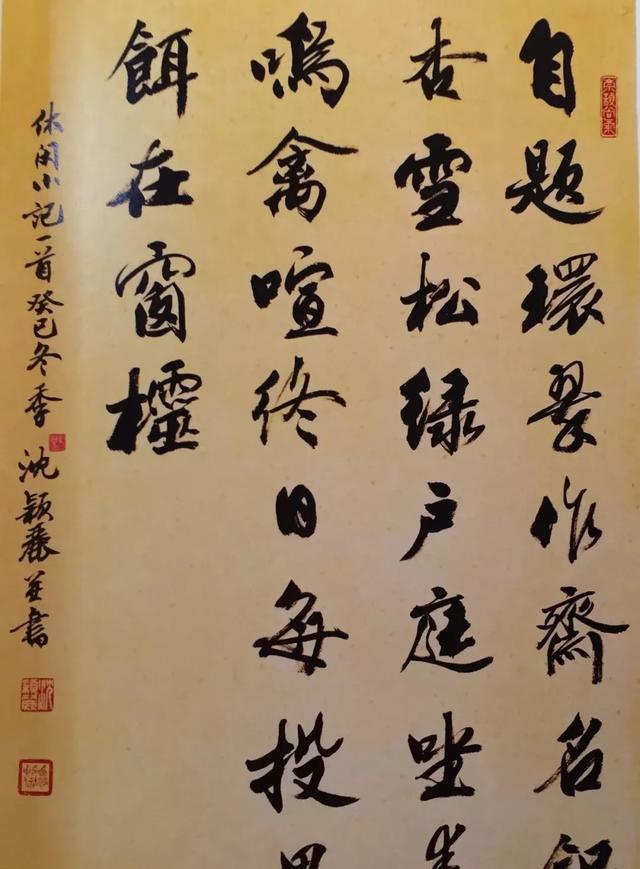 自题環翠作齋名
杏雪松绿户庭坐
鳴禽喧终日每投
餌在窗櫺
休闲小記一首癸巳冬季沈颖麗並書